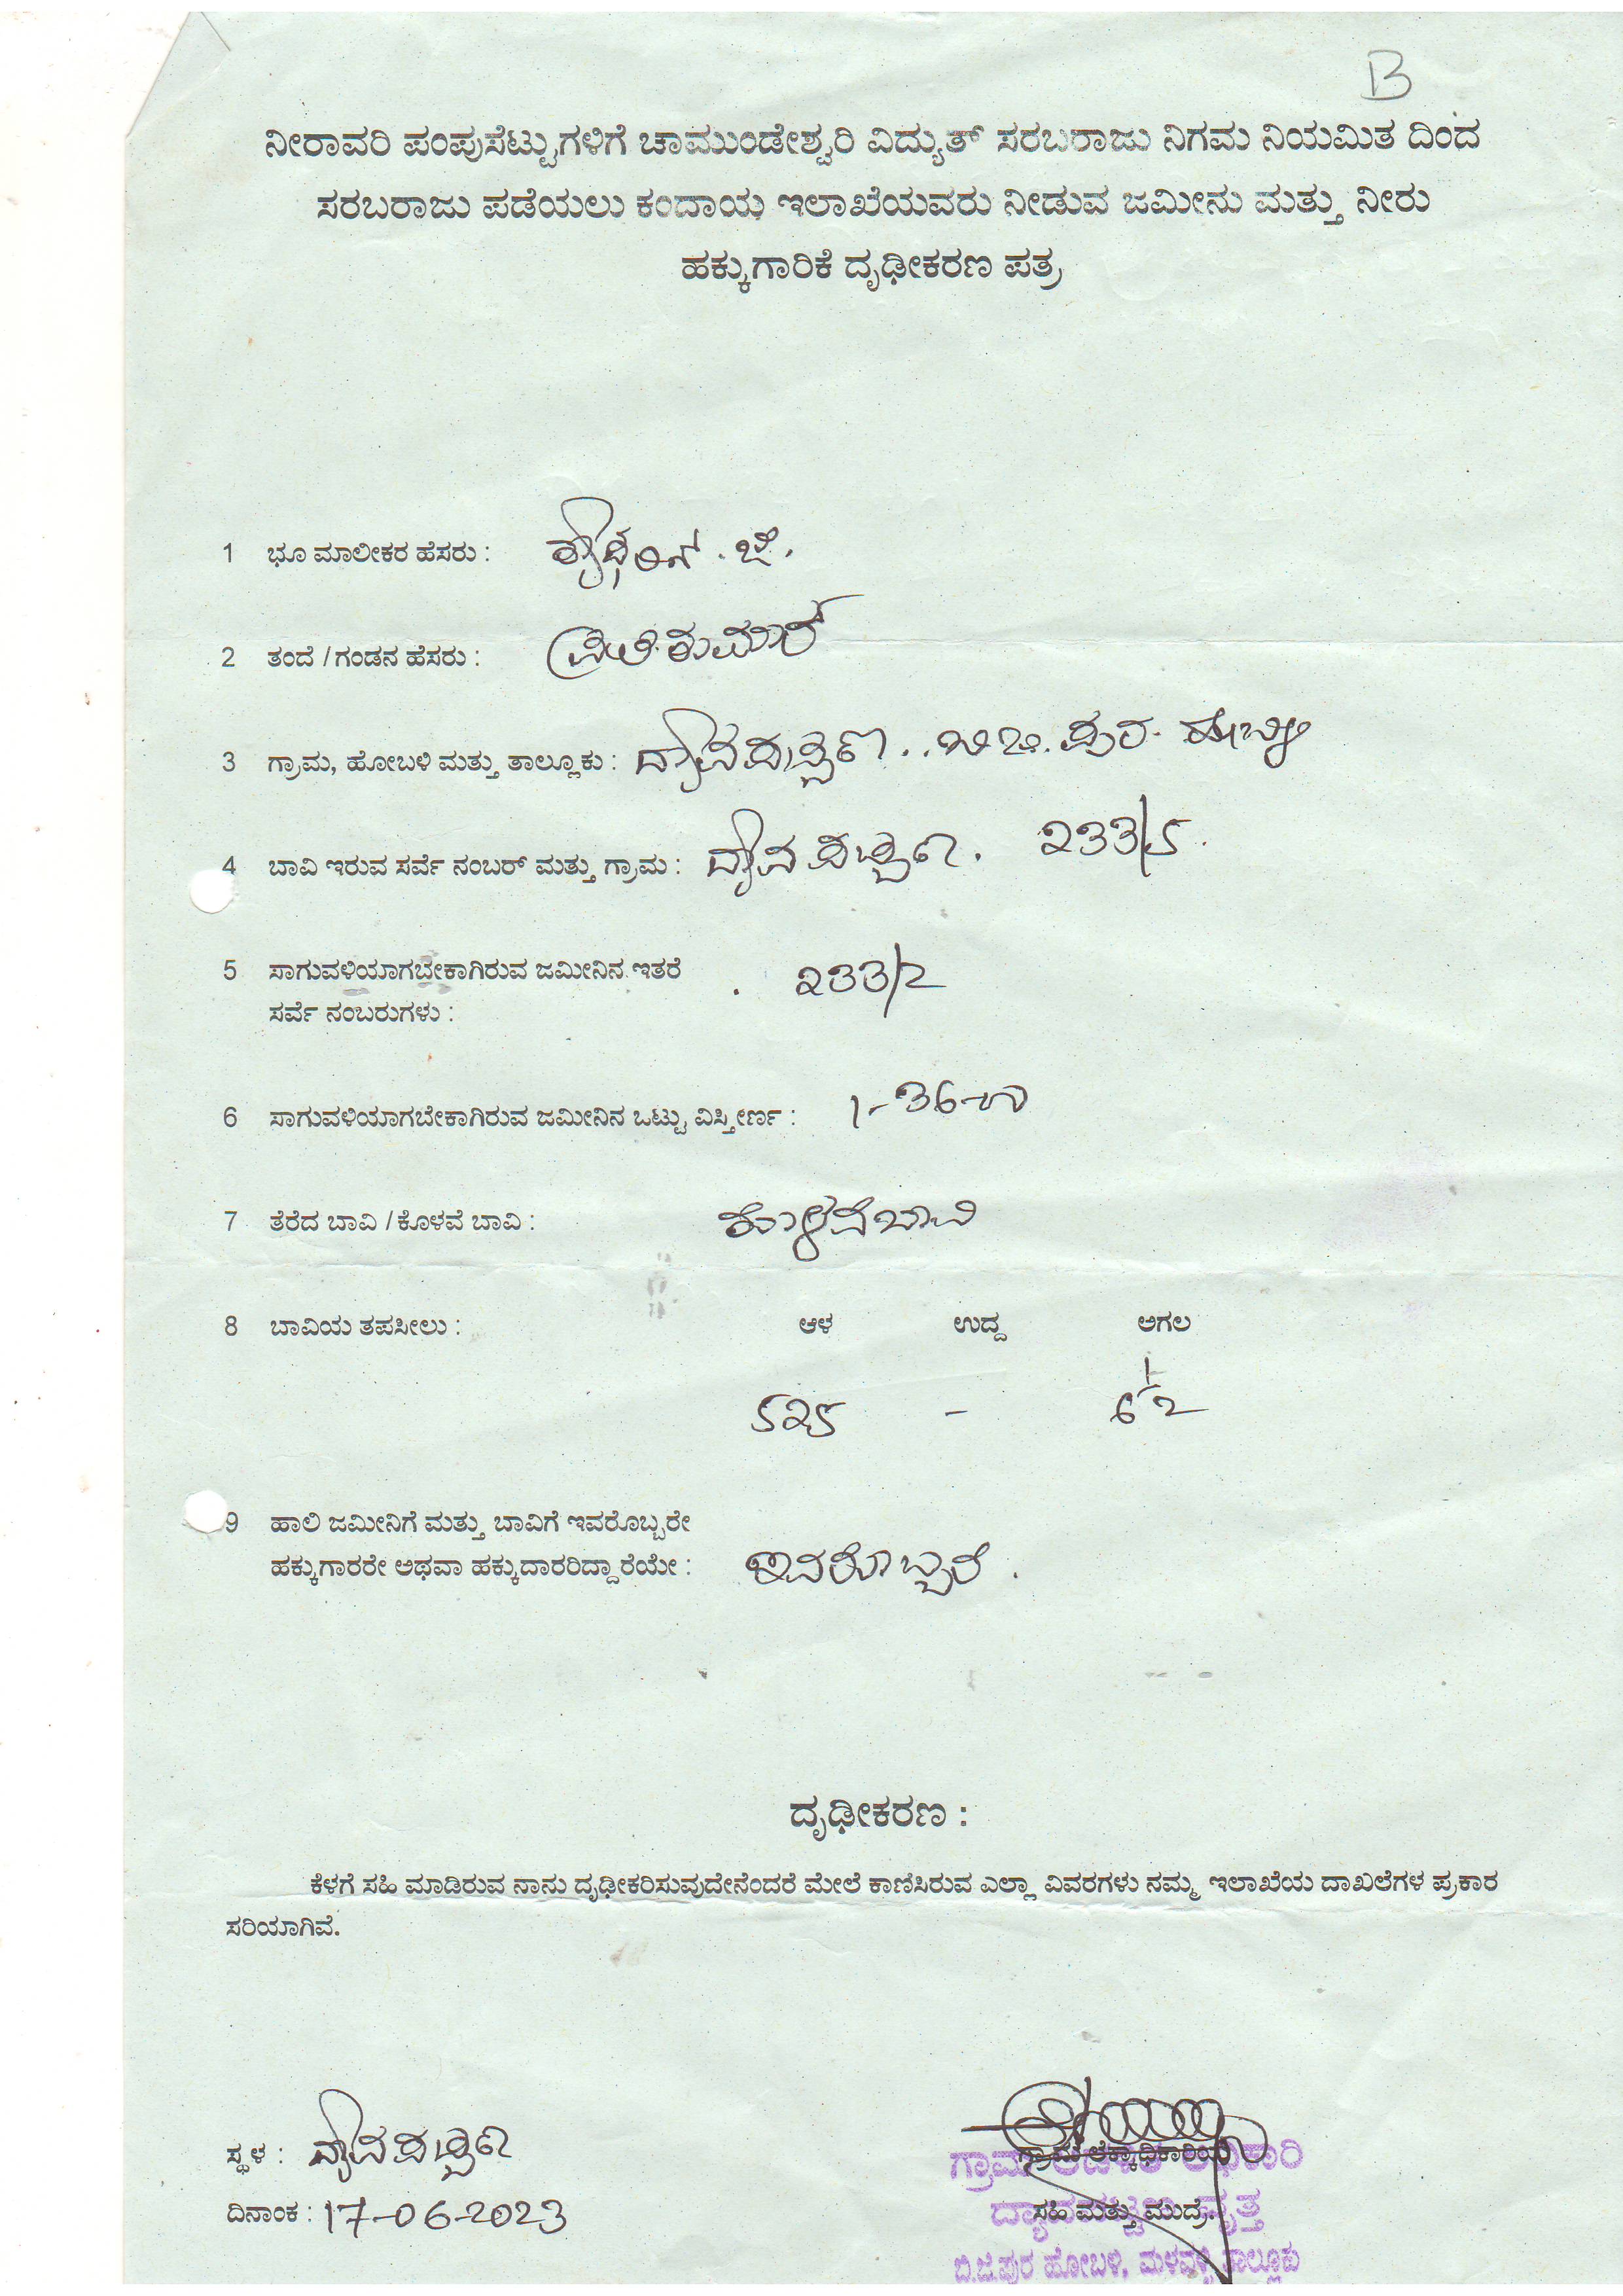 B
ನೀರಾವರಿ ಪಂಪುಸೆಟ್ಟುಗಳಿಗೆ ಚಾಮುಂಡೇಶ್ವರಿ ವಿದ್ಯುತ್ ಸರಬರಾಜು ನಿಗಮ ನಿಯಮಿತ ದಿಂದ
ಸರಬರಾಜು ಪಡೆಯಲು ಕಂದಾಯ ಇಲಾಖೆಯವರು ನೀಡುವ ಜಮೀನು ಮತ್ತು ನೀರು
ಹಕ್ಕುಗಾರಿಕೆ ದೃಢೀಕರಣ ಪತ್ರ
1 ಭೂ ಮಾಲೀಕರ ಹೆಸರು :
2 ತಂದೆ / ಗಂಡನ ಹೆಸರು :
3 ಗ್ರಾಮ, ಹೋಬಳಿ ಮತ್ತು ತಾಲ್ಲೂಕು : ದ್ಯಾವಪಟ್ಟಣ
4 ಬಾವಿ ಇರುವ ಸರ್ವೆ ನಂಬರ್ ಮತ್ತು ಗ್ರಾಮ : ದ್ಯಾವಪಟ್ಟಣ. 233/5.
5 ಸಾಗುವಳಿಯಾಗಬೇಕಾಗಿರುವ ಜಮೀನಿನ ಇತರೆ 233/2
ಸರ್ವೆ ನಂಬರುಗಳು :
6 ಸಾಗುವಳಿಯಾಗಬೇಕಾಗಿರುವ ಜಮೀನಿನ ಒಟ್ಟು ವಿಸ್ತೀರ್ಣ : 1-36-00
7 ತೆರೆದ ಬಾವಿ / ಕೊಳವೆ ಬಾವಿ : ಕೊಳವೆಬಾವಿ
8 ಬಾವಿಯ ತಪಸೀಲು : ಆಳ ಉದ್ದ ಅಗಲ
525 - 6 1/2
9 ಹಾಲಿ ಜಮೀನಿಗೆ ಮತ್ತು ಬಾವಿಗೆ ಇವರೊಬ್ಬರೇ
ಹಕ್ಕುಗಾರರೇ ಅಥವಾ ಹಕ್ಕುದಾರರಿದ್ದಾರೆಯೇ : ಇವರೊಬ್ಬರೆ.
ದೃಢೀಕರಣ :
ಕೆಳಗೆ ಸಹಿ ಮಾಡಿರುವ ನಾನು ದೃಢೀಕರಿಸುವುದೇನೆಂದರೆ ಮೇಲೆ ಕಾಣಿಸಿರುವ ಎಲ್ಲಾ ವಿವರಗಳು ನಮ್ಮ ಇಲಾಖೆಯ ದಾಖಲೆಗಳ ಪ್ರಕಾರ
ಸರಿಯಾಗಿವೆ.
ಸ್ಥಳ : ದ್ಯಾವಪಟ್ಟಣ
ಗ್ರಾಮ ಲೆಕ್ಕಾಧಿಕಾರಿಯ
ದಿನಾಂಕ : 17-06-2023
ಸಹಿ ಮತ್ತು ಮುದ್ರೆ.
ಬಿ.ಜಿ.ಪುರ ಹೋಬಳಿ, ಮಳವಳ್ಳಿ ತಾಲ್ಲೂಕು